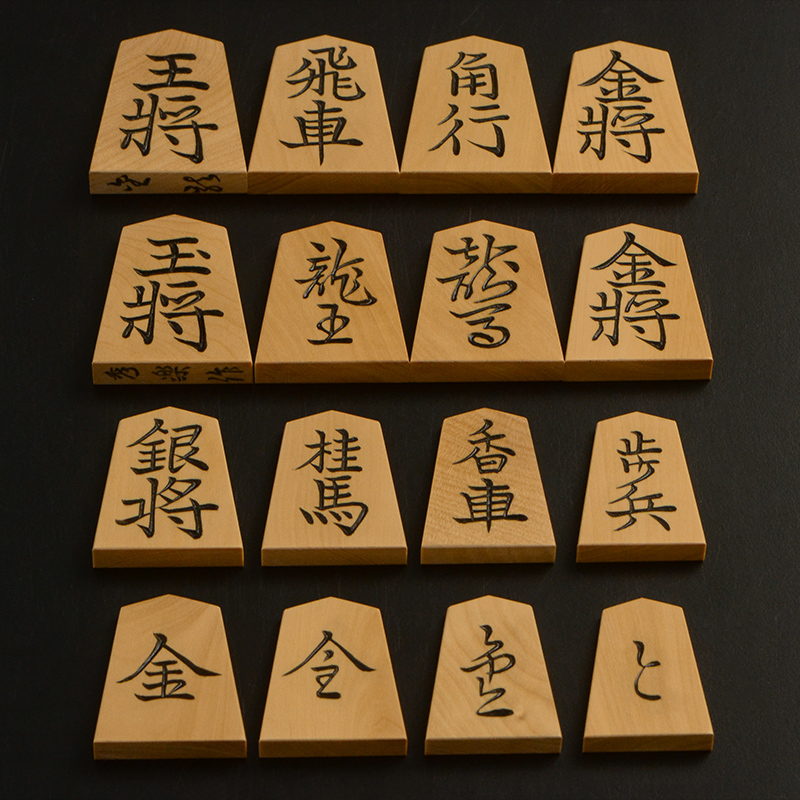 王將
飛車
角行
金將
玉將
龍王
龍馬
金將
秀 作
銀将
桂馬
香車
歩兵
金
全
と